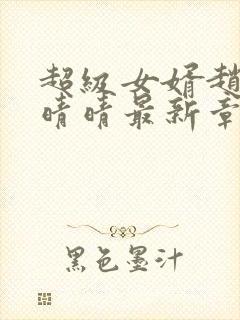 超级女婿趙
晴晴最新章
黑色墨汁